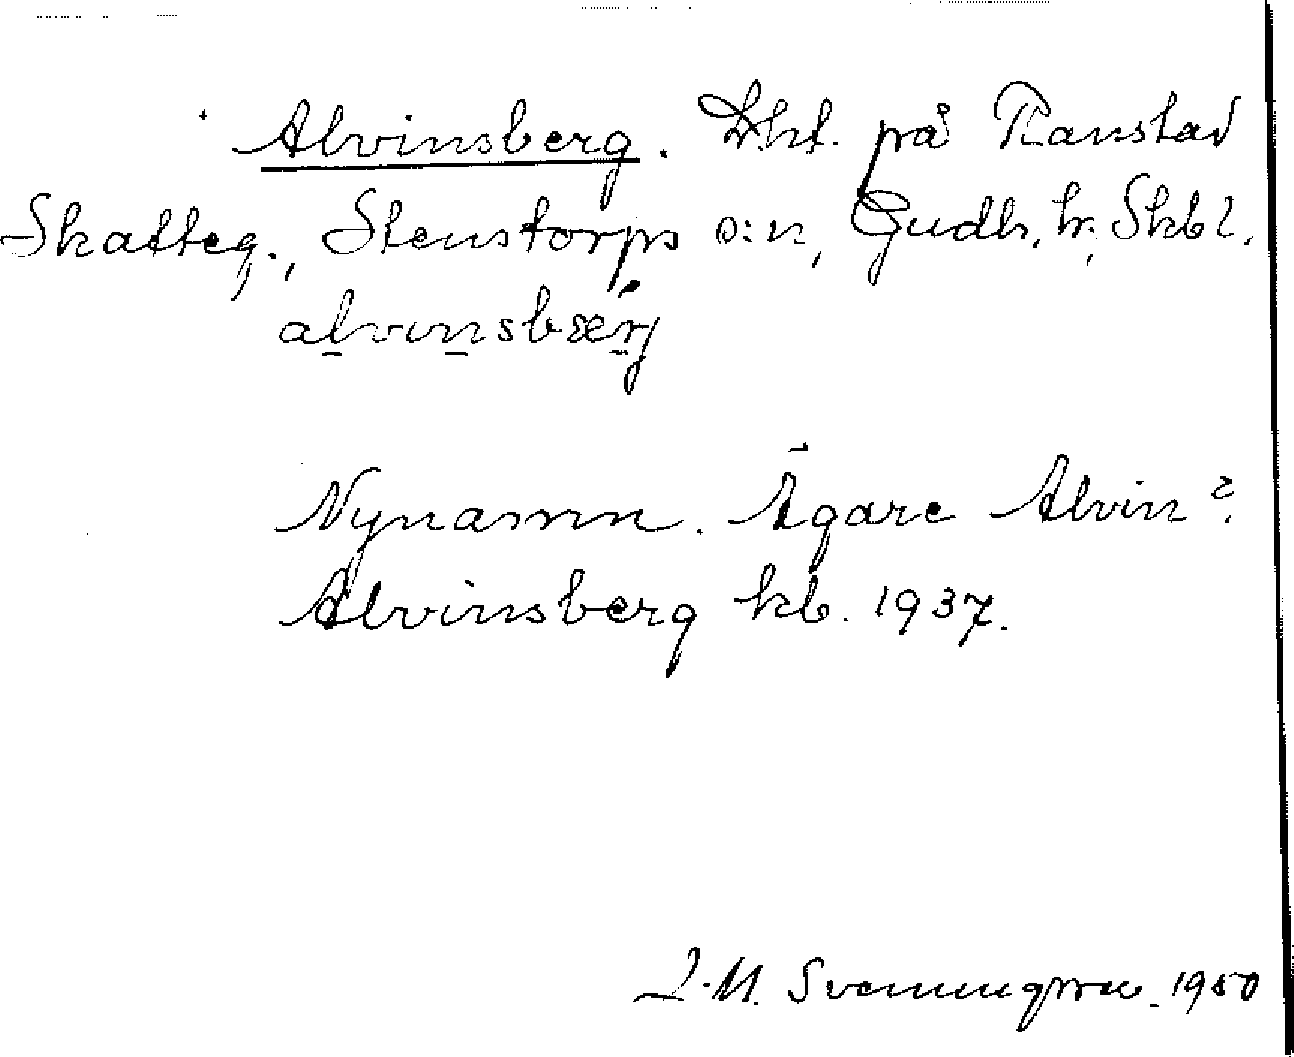 Alvinsberg. Lht. på Ranstad
Skatteg., Stenstorps s:n, Gudh. hr, Skbl.
alvinsbærj
Nynamn. Ägare Alvin?
Alvinsberg kb. 1937.
Svenungsson 1950